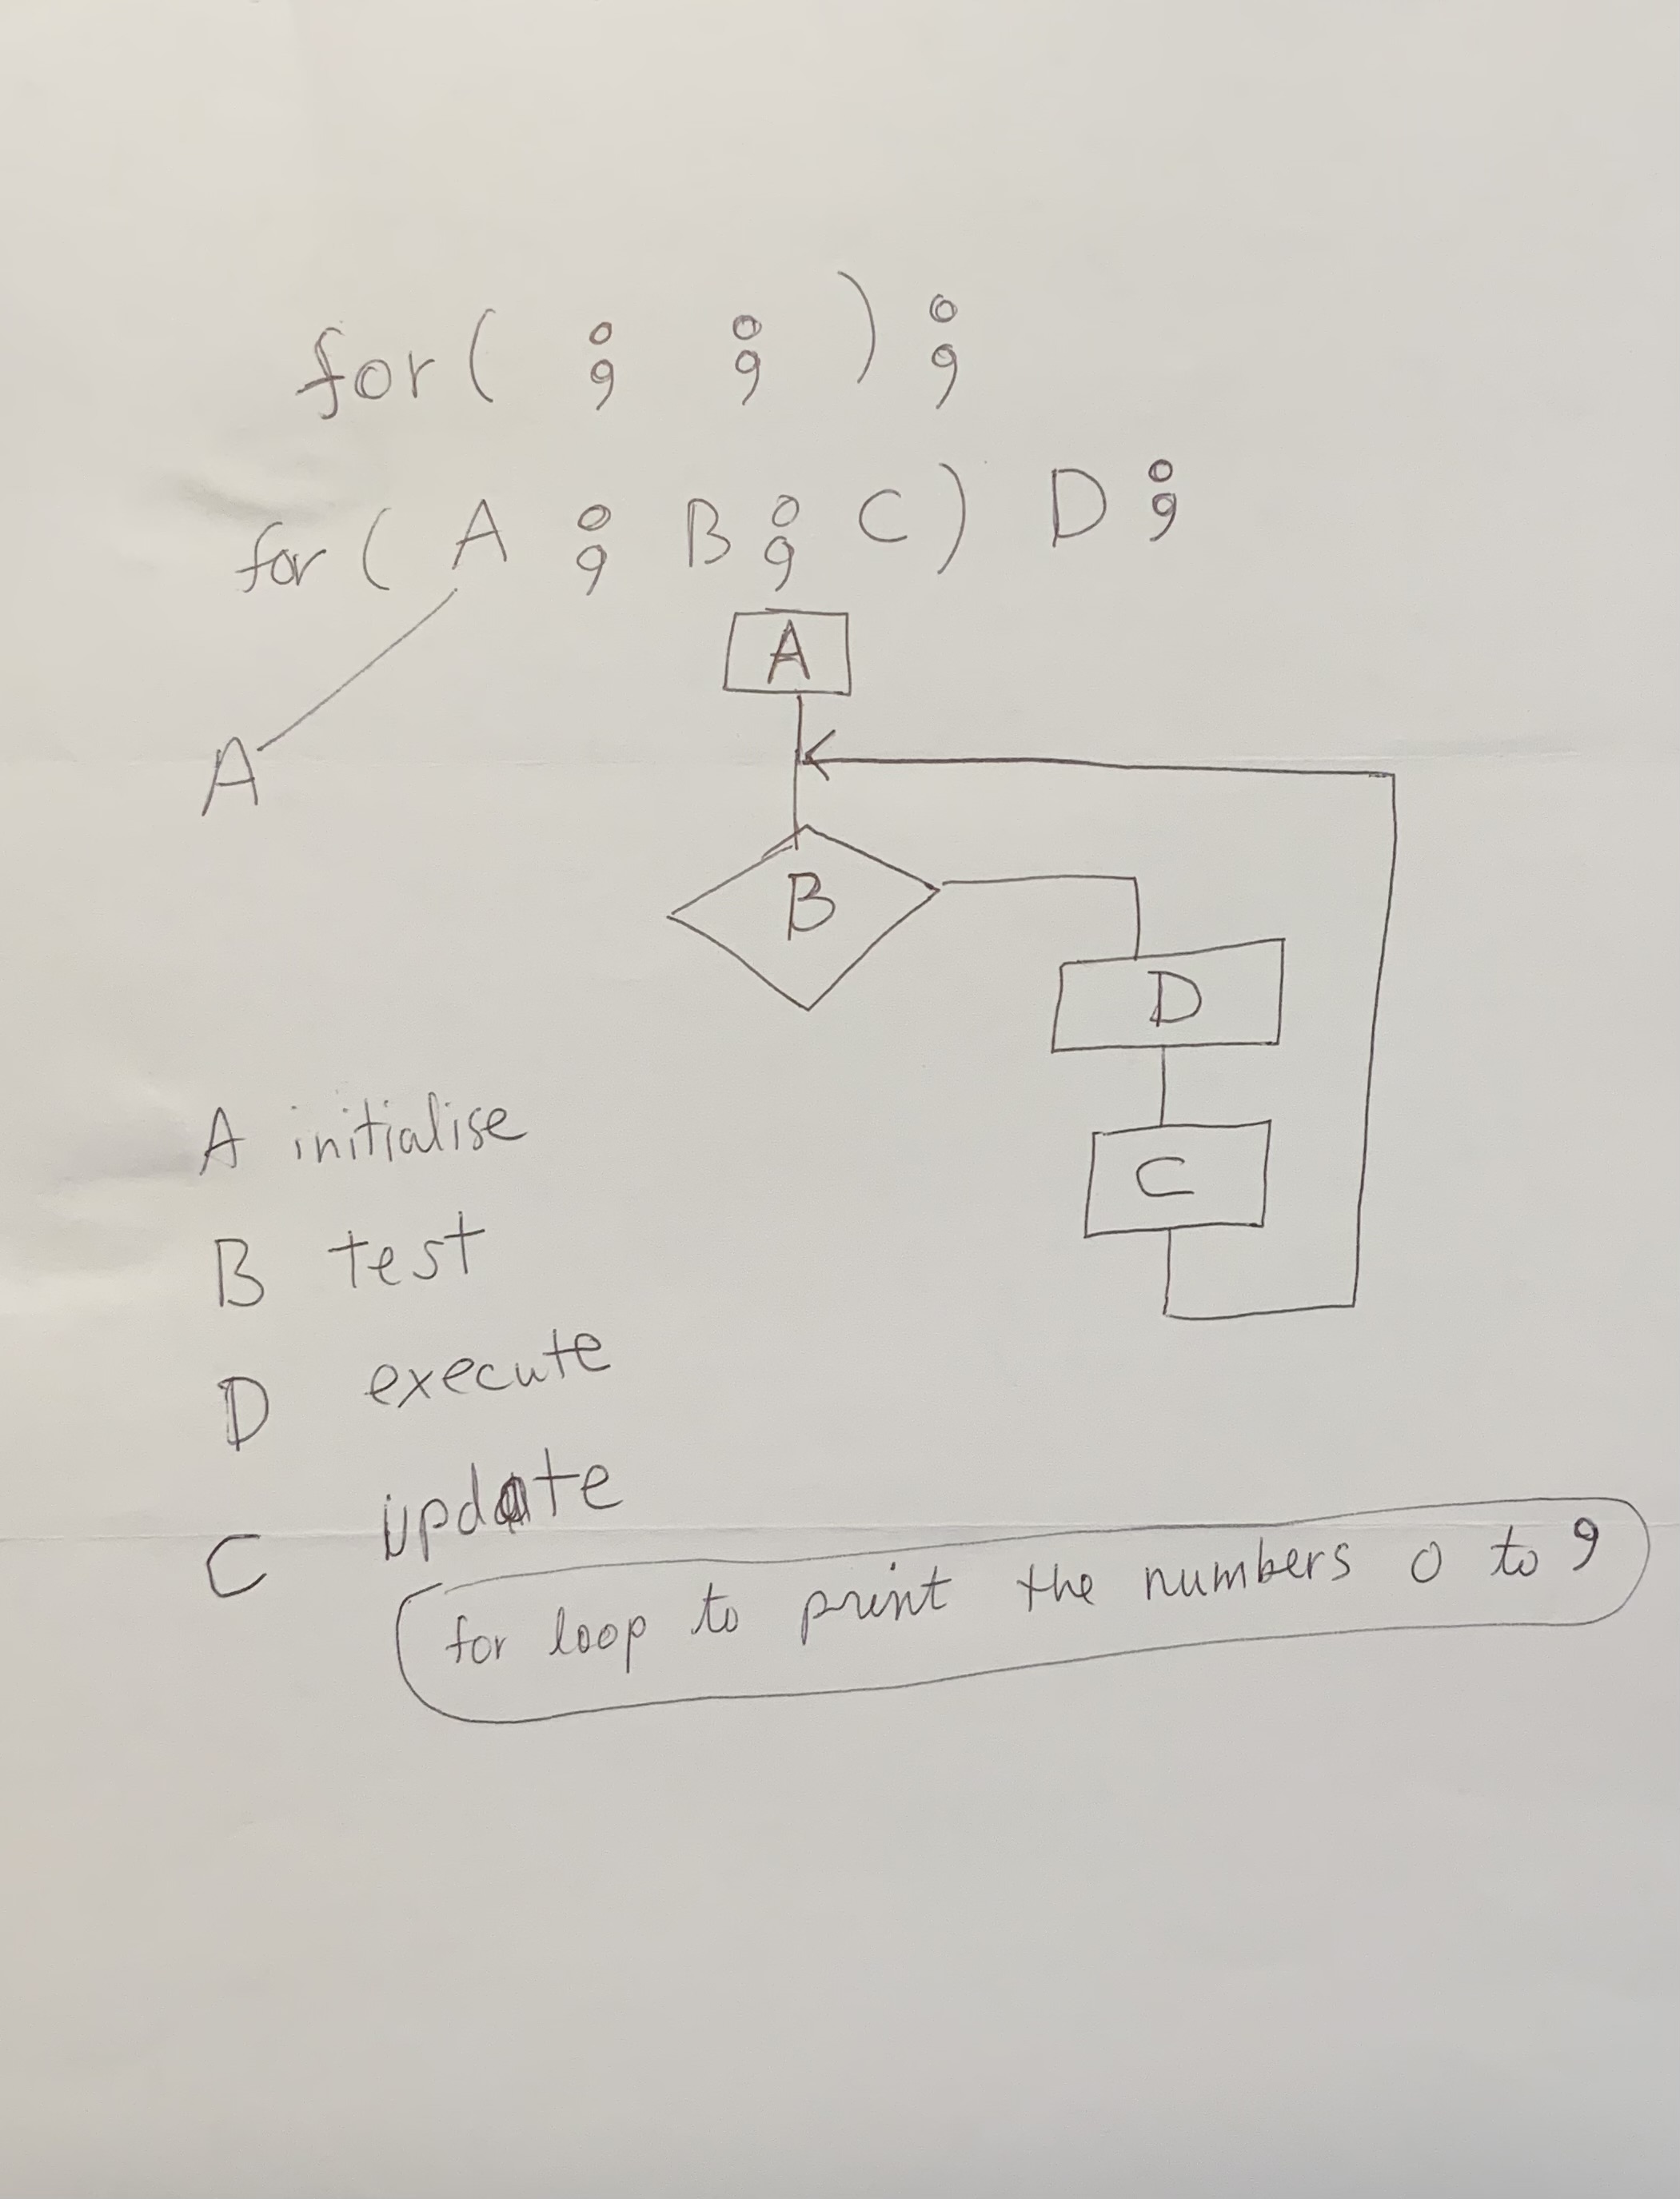 for( ; ; ) ;
for ( A ; B ; C ) D ;
A
A
B
D
C
A initialise
B test
D execute
C update
for loop to print the numbers 0 to 9